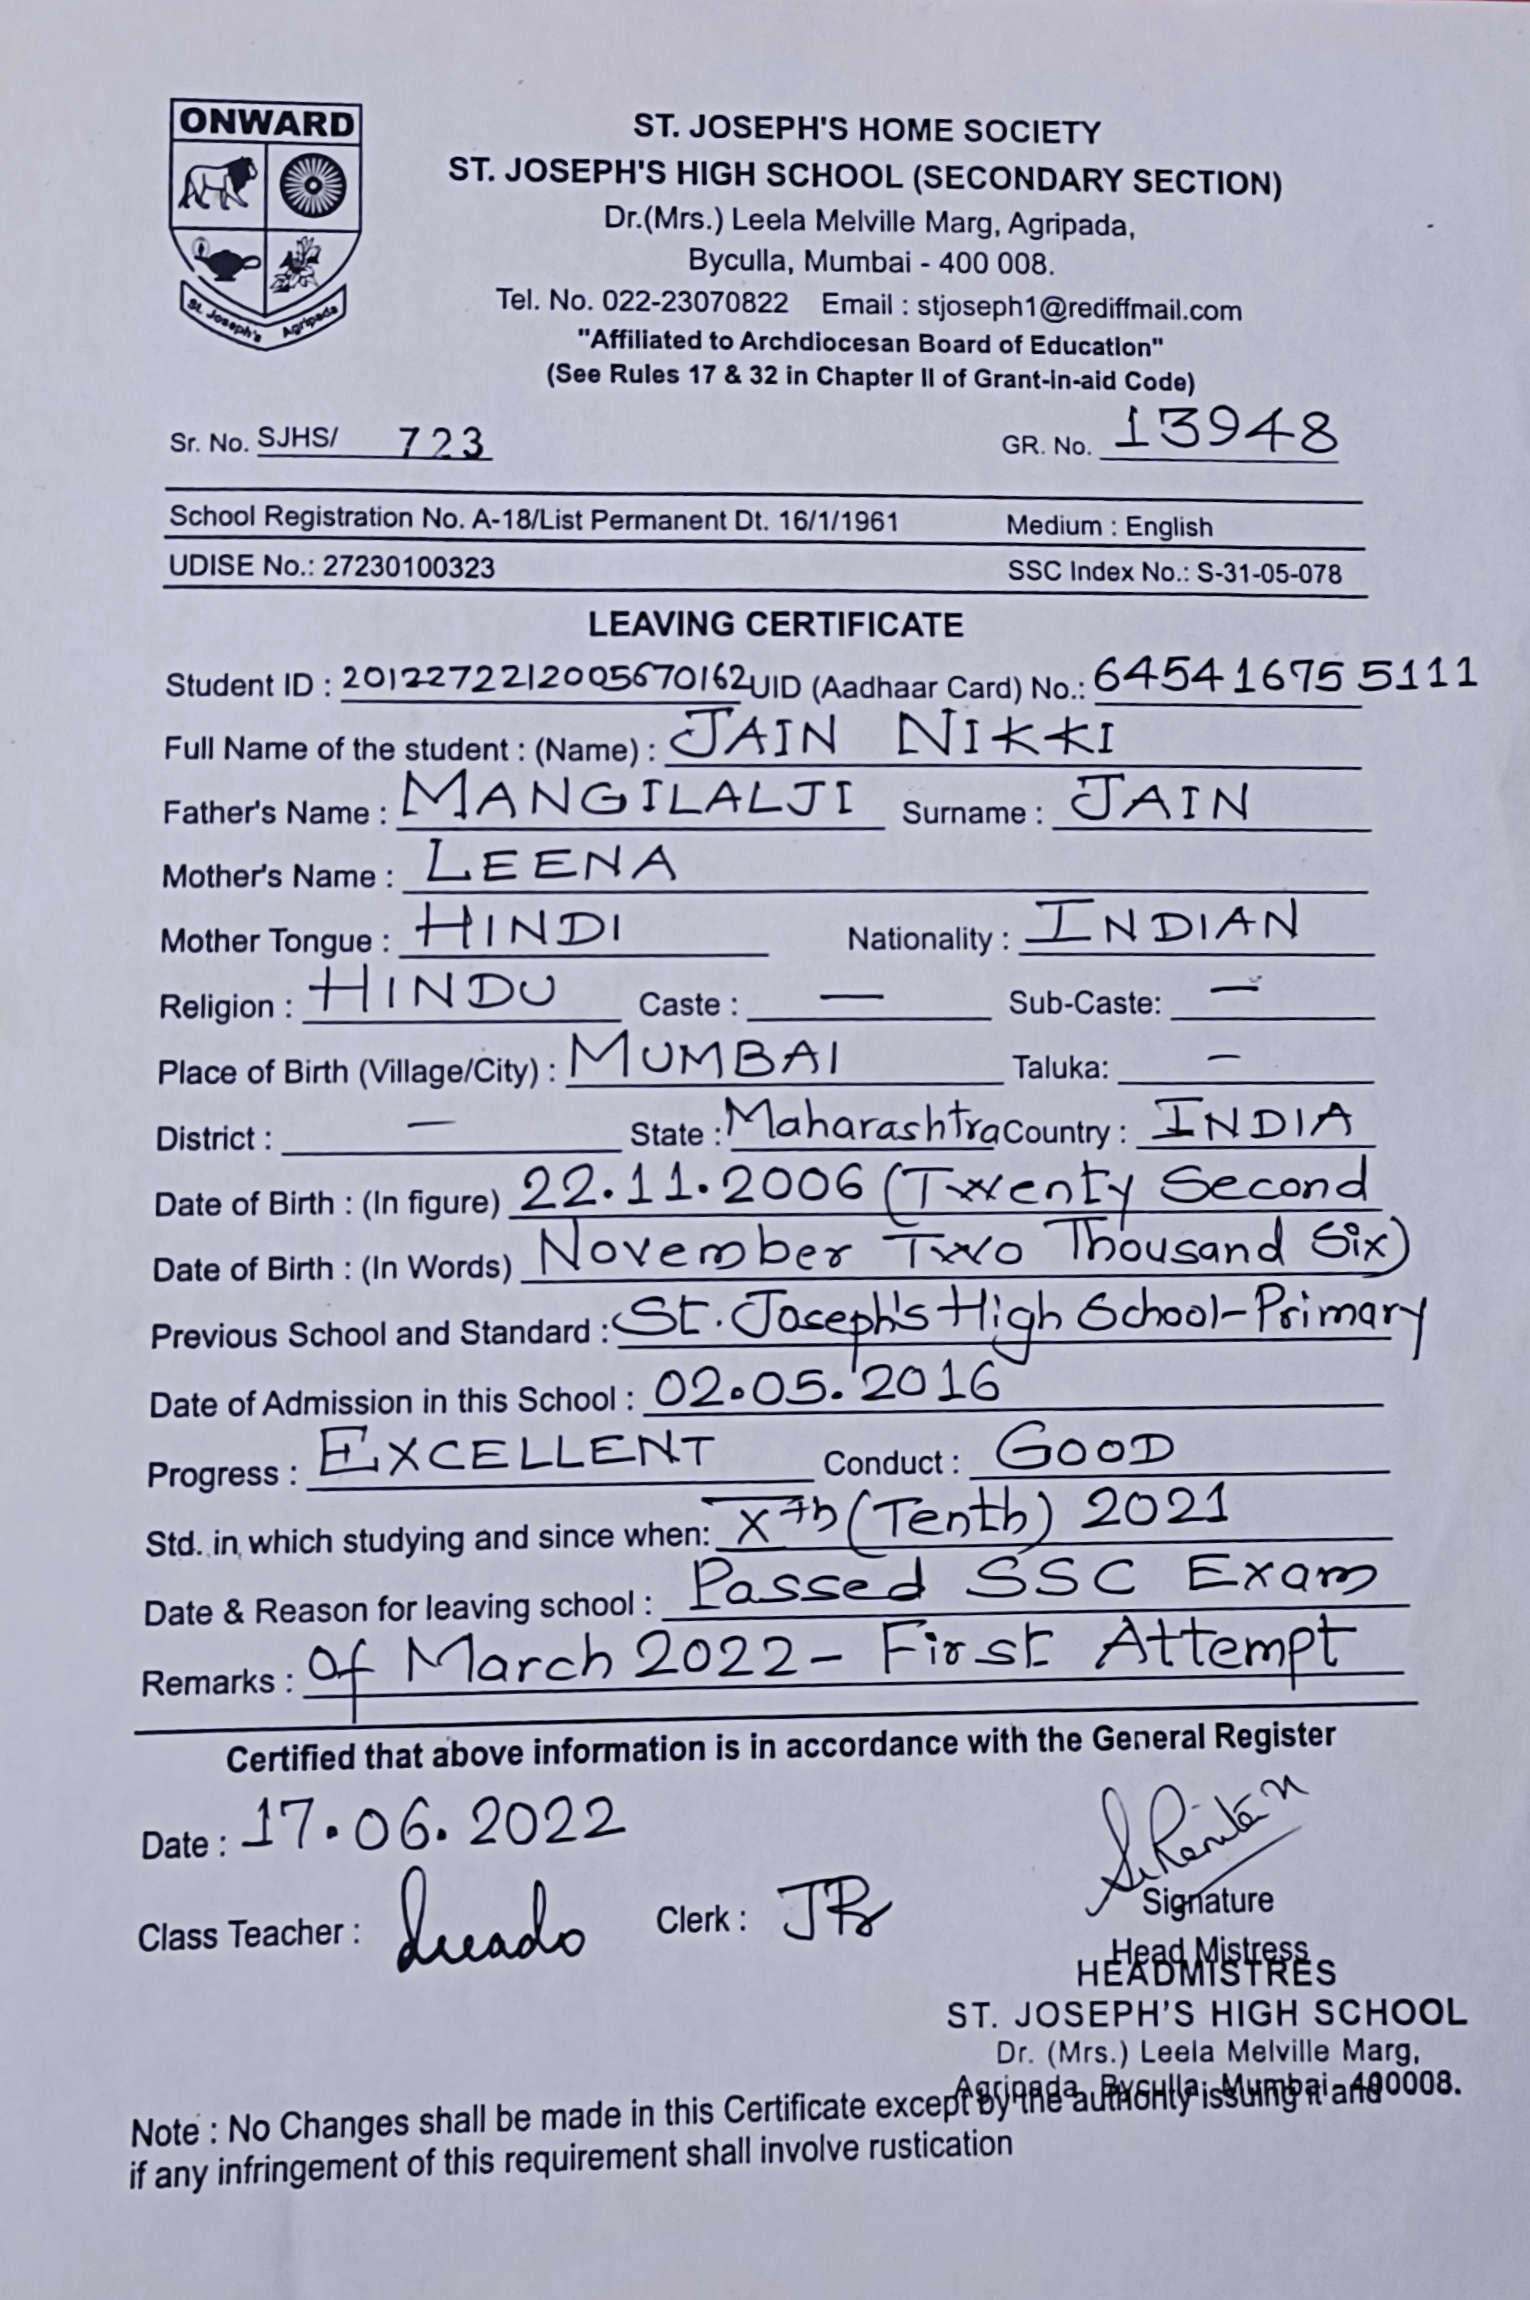 ONWARD
St. Joseph's Agripada
ST. JOSEPH'S HOME SOCIETY
ST. JOSEPH'S HIGH SCHOOL (SECONDARY SECTION)
Dr.(Mrs.) Leela Melville Marg, Agripada,
Byculla, Mumbai - 400 008.
Tel. No. 022-23070822 Email : stjoseph1@rediffmail.com
"Affiliated to Archdiocesan Board of Education"
(See Rules 17 & 32 in Chapter II of Grant-in-aid Code)
Sr. No. SJHS/ 723 GR. No. 13948
School Registration No. A-18/List Permanent Dt. 16/1/1961 Medium : English
UDISE No.: 27230100323 SSC Index No.: S-31-05-078
LEAVING CERTIFICATE
Student ID : 2012272212005670162 UID (Aadhaar Card) No.: 645416755111
Full Name of the student : (Name) : JAIN NIKKI
Father's Name : MANGILALJI Surname : JAIN
Mother's Name : LEENA
Mother Tongue : HINDI Nationality : INDIAN
Religion : HINDU Caste : — Sub-Caste: —
Place of Birth (Village/City) : MUMBAI Taluka: —
District : — State : Maharashtra Country : INDIA
Date of Birth : (In figure) 22.11.2006 (Twenty Second
Date of Birth : (In Words) November Two Thousand Six)
Previous School and Standard : St. Joseph's High School-Primary
Date of Admission in this School : 02.05.2016
Progress : EXCELLENT Conduct : GOOD
Std. in which studying and since when: Xth (Tenth) 2021
Date & Reason for leaving school : Passed SSC Exam
Remarks : of March 2022 - First Attempt
Certified that above information is in accordance with the General Register
Date : 17.06.2022
Class Teacher : Clerk : Signature
Head Mistress
HEADMISTRES
ST. JOSEPH'S HIGH SCHOOL
Dr. (Mrs.) Leela Melville Marg,
Agripada, Byculla, Mumbai-400008.
Note : No Changes shall be made in this Certificate except by the authority issuing it and
if any infringement of this requirement shall involve rustication